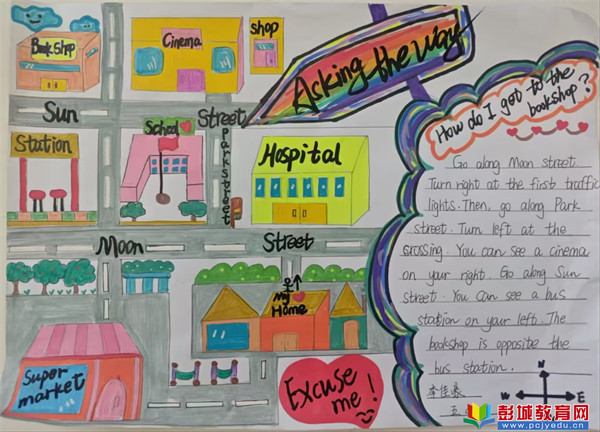 Book Shop
Cinema
Shop
Asking the way
Sun Street
Station
School
Park Street
Hospital
Moon Street
my Home
Super market
Excuse me!
How do I get to the
bookshop?
Go along Moon street.
Turn right at the first traffic
lights. Then, go along Park
street. Turn left at the
crossing. You can see a cinema
on your right. Go along Sun
street. You can see a bus
station on your left. The
bookshop is opposite the
bus station.
N
W
E
彭城教育网
www.pcjyedu.cn